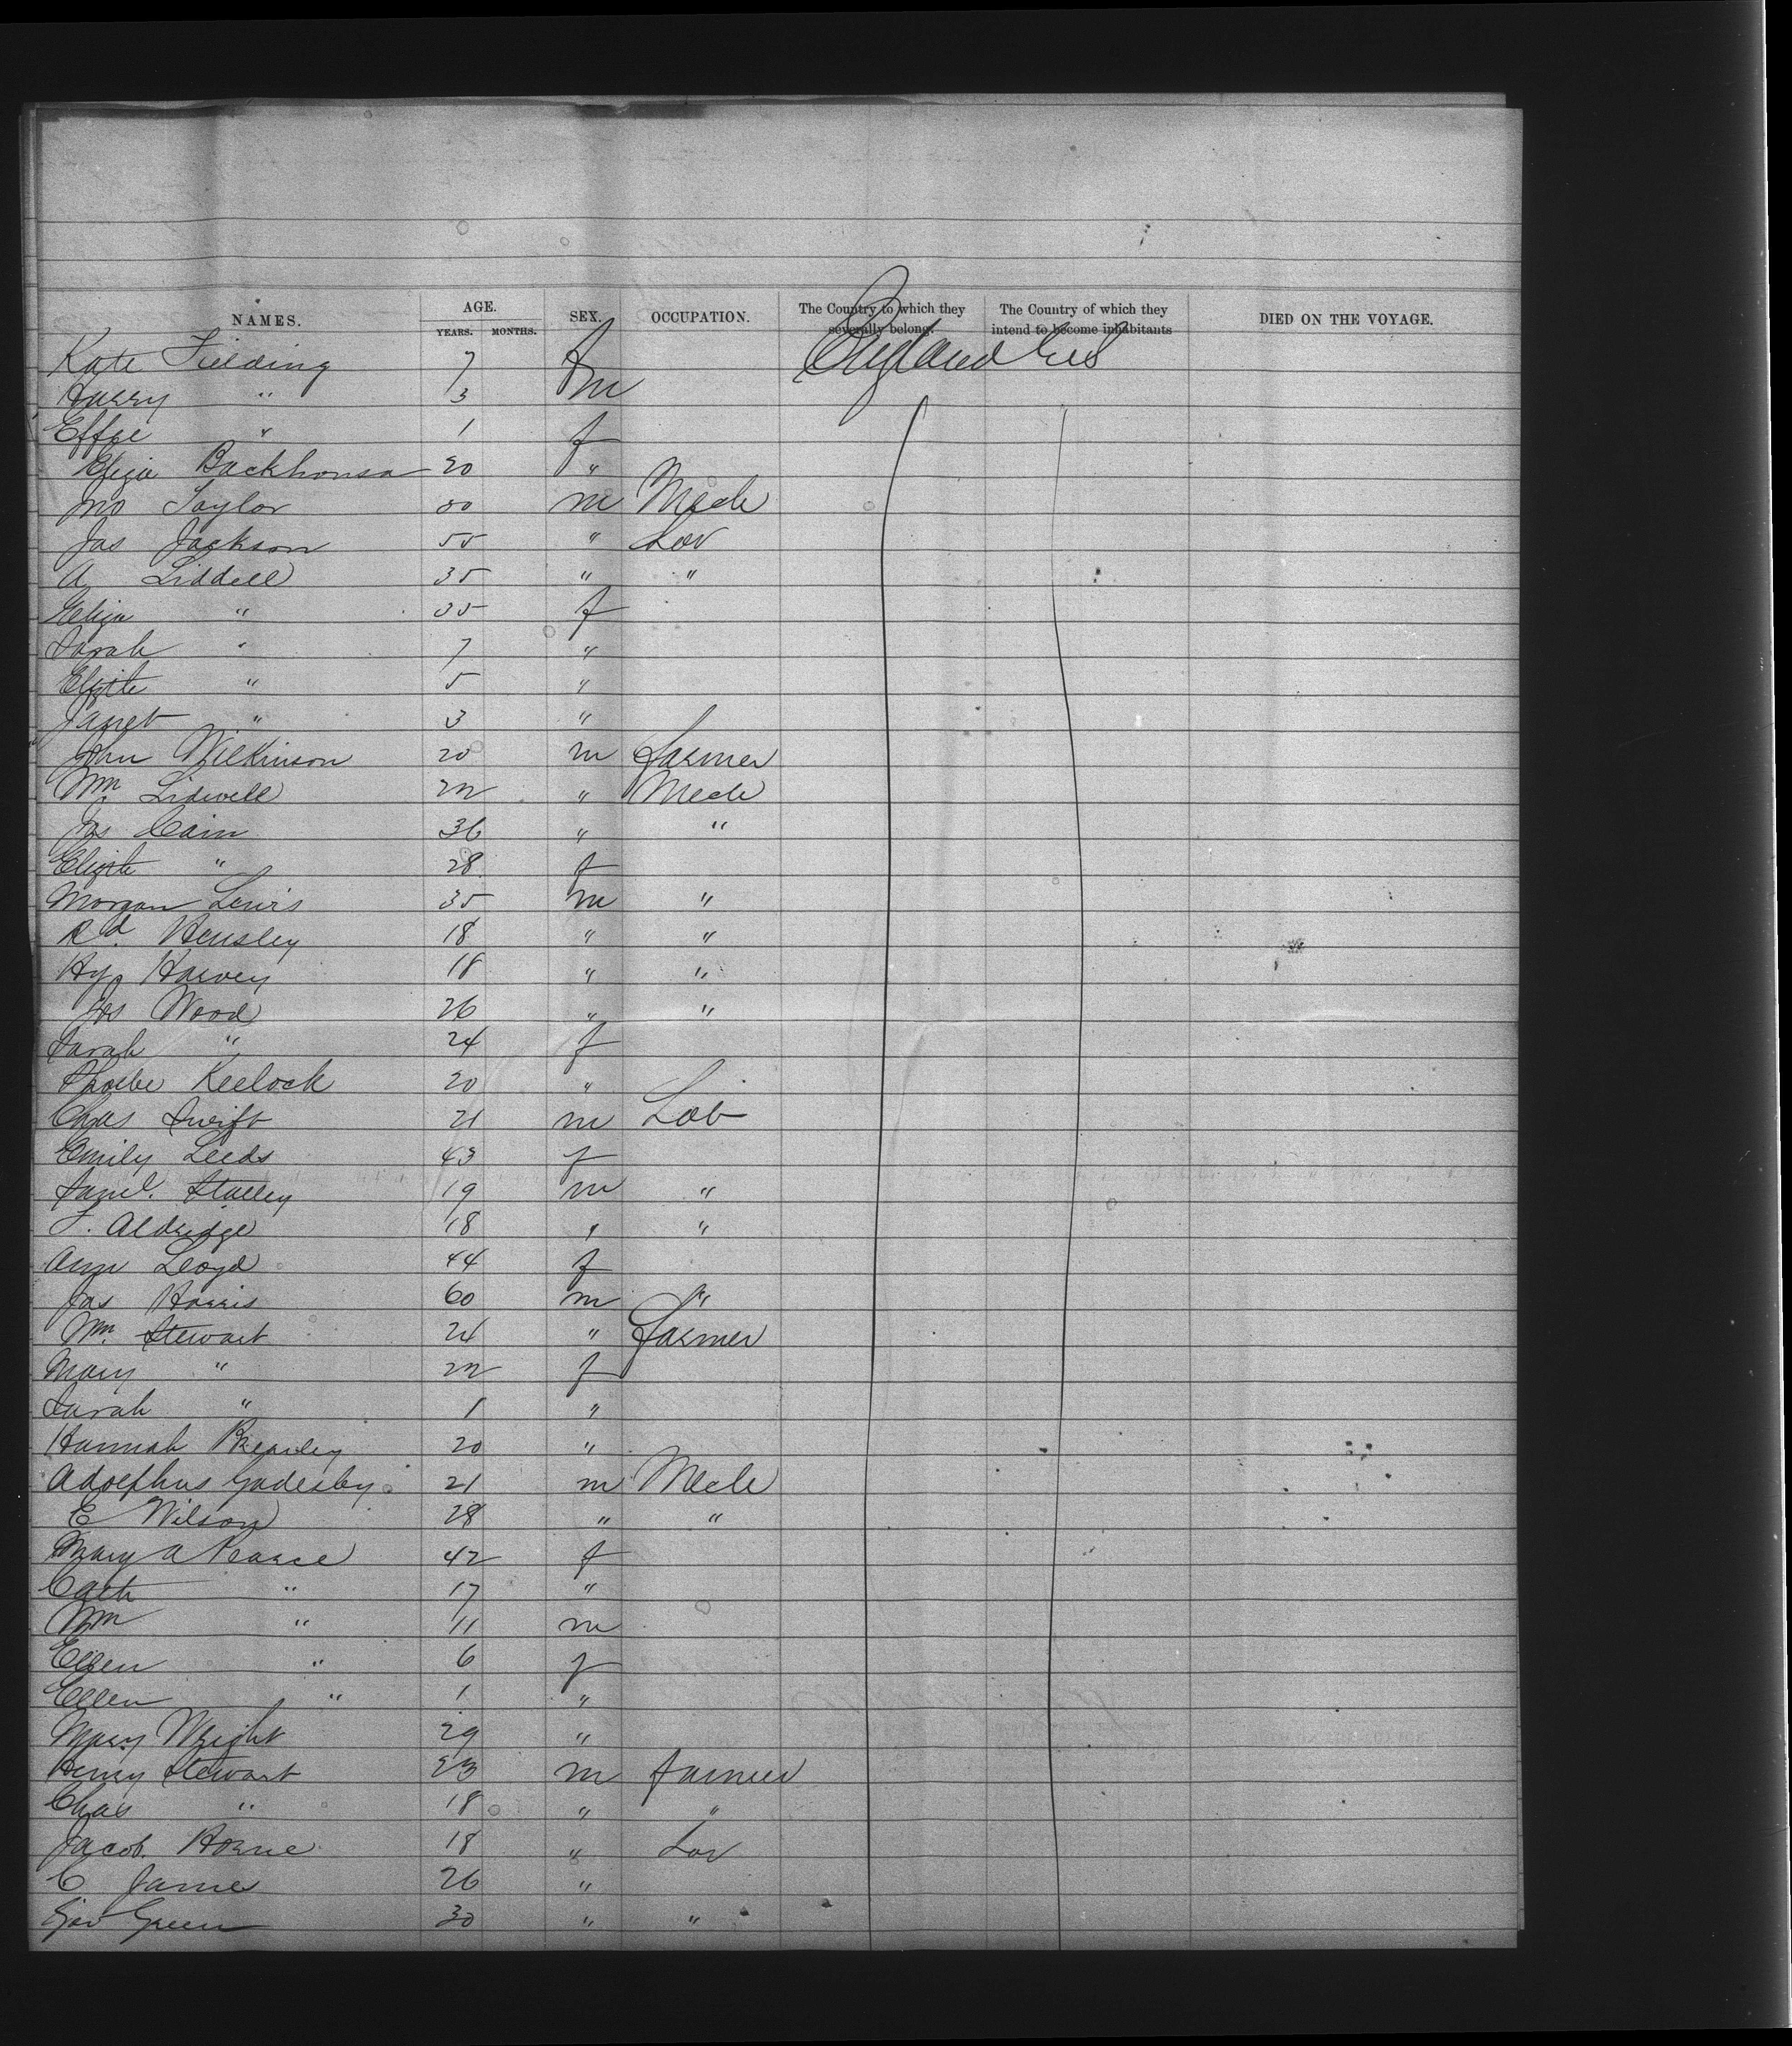 NAMES. AGE. YEARS. MONTHS. SEX. OCCUPATION. The Country to which they severally belong. The Country of which they intend to become inhabitants DIED ON THE VOYAGE.
Kate Fielding 7 f England U S
Harry " 3 m
Effie " 1 f
Eliza Backhousa 20 "
Jno Taylor 50 m Mech
Jas Jackson 55 " Lab
A Liddell 35 " "
Eliza " 35 f
Sarah " 7 "
Elizth " 5 "
Janet " 3 "
John Wilkinson 20 m farmer
Wm Lidwell 22 " Mech
Jas Cain 36 " "
Elizth " 28 f
Morgan Lewis 35 m "
Rd. Hensley 18 " "
Hy Harvey 18 " "
Jos Wood 26 " "
Sarah " 24 f
Phoebe Keelock 20 "
Chas Swift 21 m Lab
Emily Leeds 43 f
Saml. Stalley 19 m "
F. Aldridge 18 " "
Ann Lloyd 44 f
Jas Harris 60 m "
Wm. Stewart 24 " farmer
Mary " 22 f
Sarah " 1 "
Hannah Brearley 20 "
Adolphus Gadesby 21 m Mech
E Wilson 28 " "
Mary A Pearce 42 f
Cath " 17 "
Wm " 11 m
Ellen " 6 f
Ellen " 1 "
Mary Wright 29 "
Henry Stewart 23 m farmer
Chas " 18 " "
Jacob Horne 18 " Lab
C Jame 26 "
Geo Green 30 " "